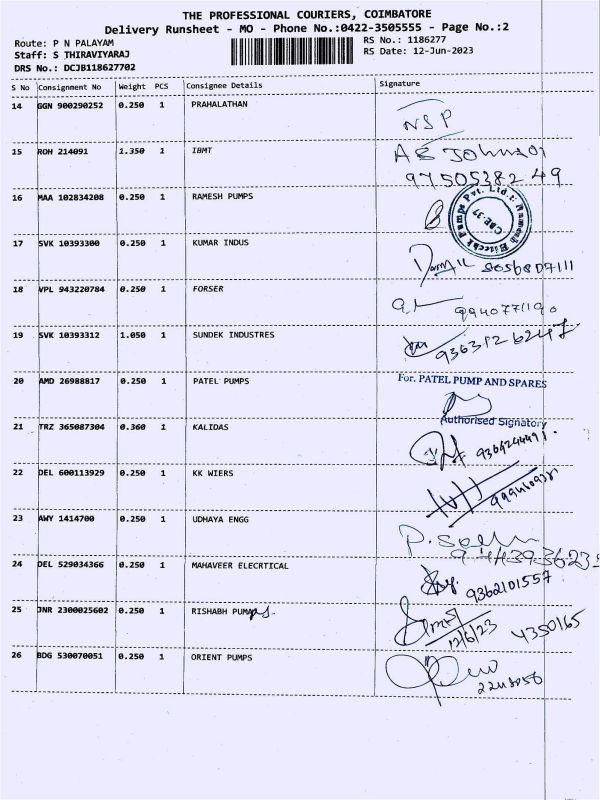 THE PROFESSIONAL COURIERS, COIMBATORE
Delivery Runsheet - MO - Phone No.:0422-3505555 - Page No.:2
Route: P N PALAYAM
RS No.: 1186277
Staff: S THIRAVIYARAJ
RS Date: 12-Jun-2023
DRS No.: DCJB118627702
S No Consignment No Weight PCS Consignee Details Signature
14 GGN 900290252 0.250 1 PRAHALATHAN
NSP
15 ROH 214091 1.350 1 IBMT
9750538249
16 MAA 102834208 0.250 1 RAMESH PUMPS
17 SVK 10393300 0.250 1 KUMAR INDUS
18 VPL 943220784 0.250 1 FORSER
19 SVK 10393312 1.050 1 SUNDEK INDUSTRES
20 AMD 26988817 0.250 1 PATEL PUMPS
For. PATEL PUMP AND SPARES
Authorised Signatory
21 TRZ 365087304 0.360 1 KALIDAS
9364244491.
22 DEL 600113929 0.250 1 KK WIERS
23 AWY 1414700 0.250 1 UDHAYA ENGG
24 DEL 529034366 0.250 1 MAHAVEER ELECRTICAL
9362101557
25 JNR 2300025602 0.250 1 RISHABH PUMPS
12/6/23 4350165
26 BDG 530070051 0.250 1 ORIENT PUMPS